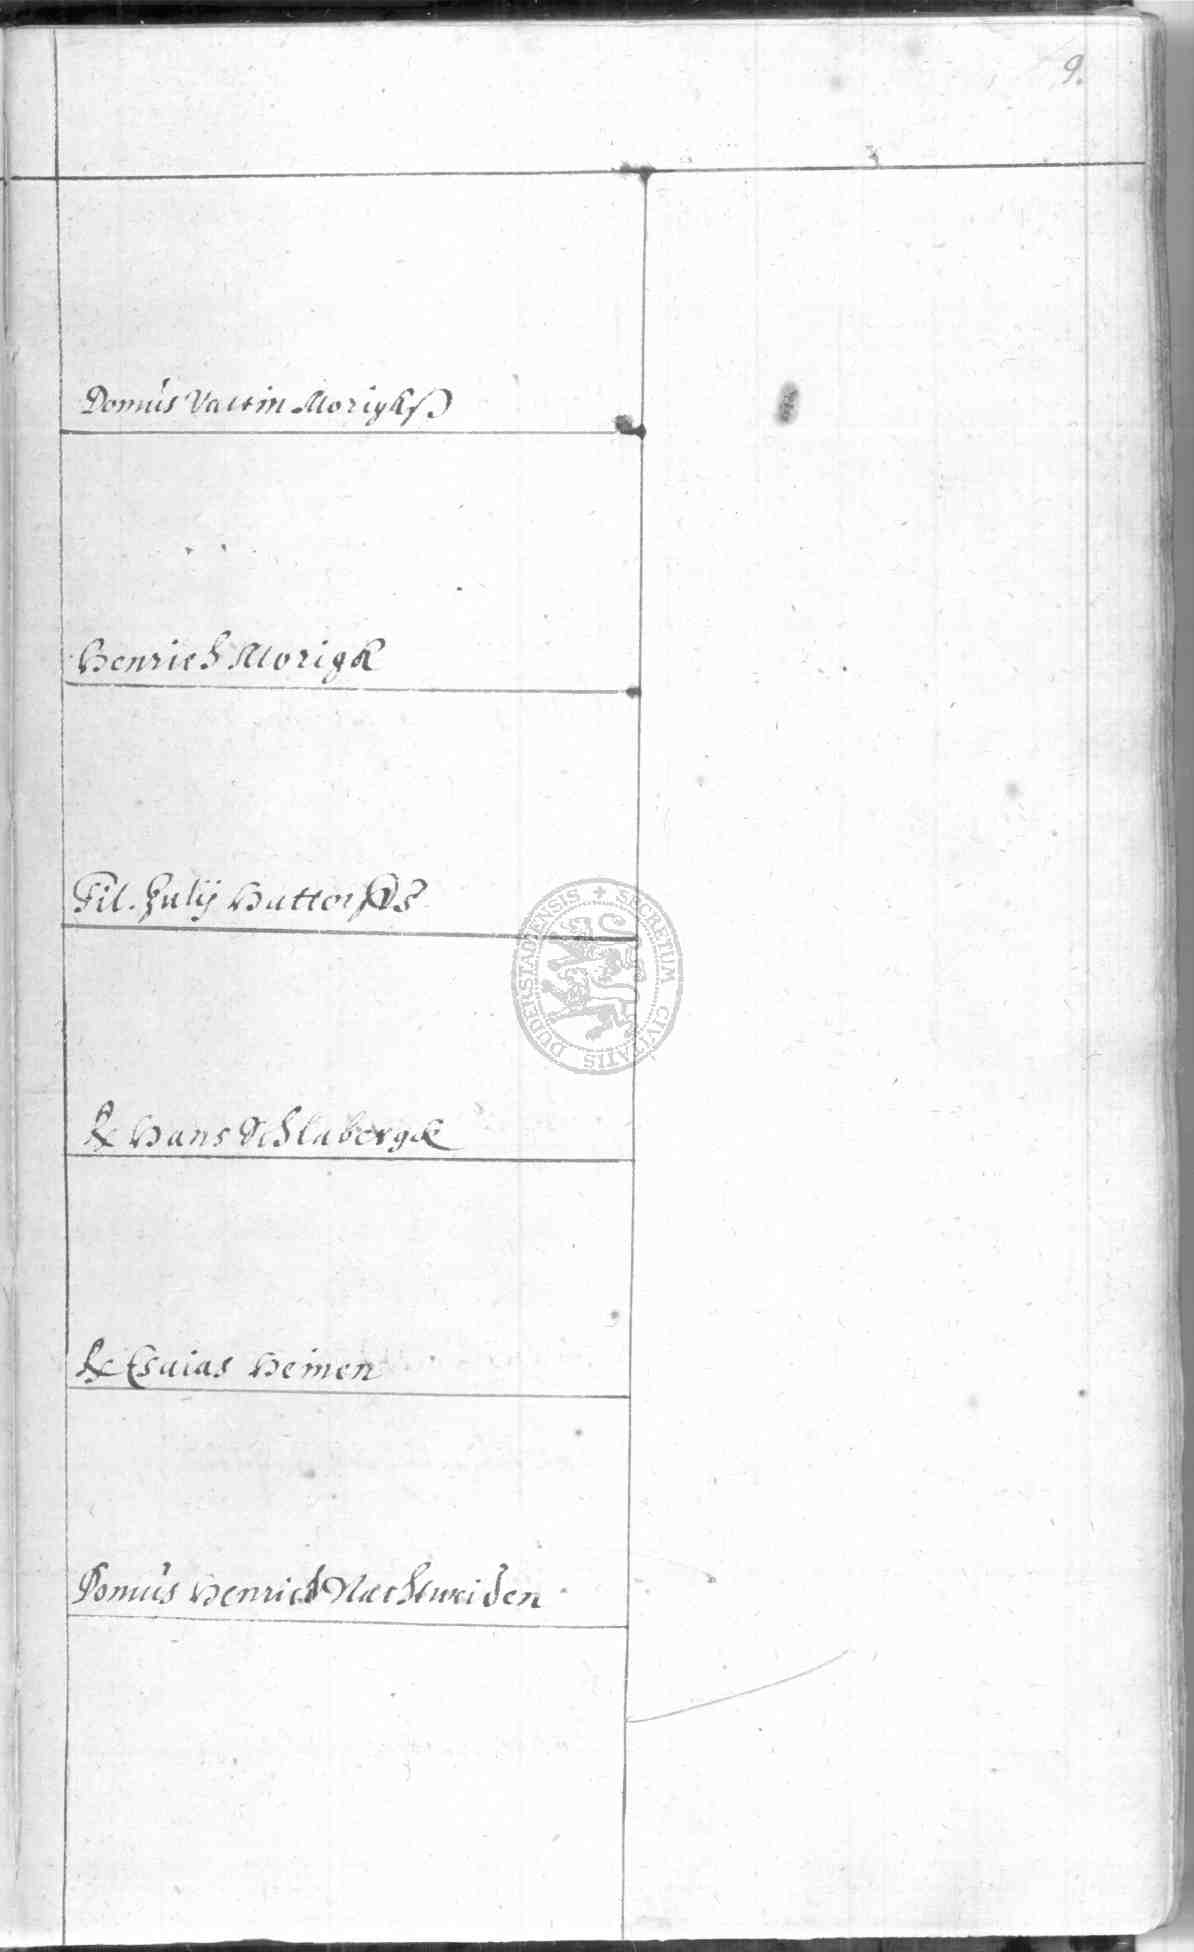 9.
Domus Valtin Morigks
Henrich Morigk
Fil. Julij Hattorffs
& Hans Schlabergk
& Esaias Heinen
Domus Henrich Nachtweiden
SECRETUM CIVITATIS DUDERSTADENSIS